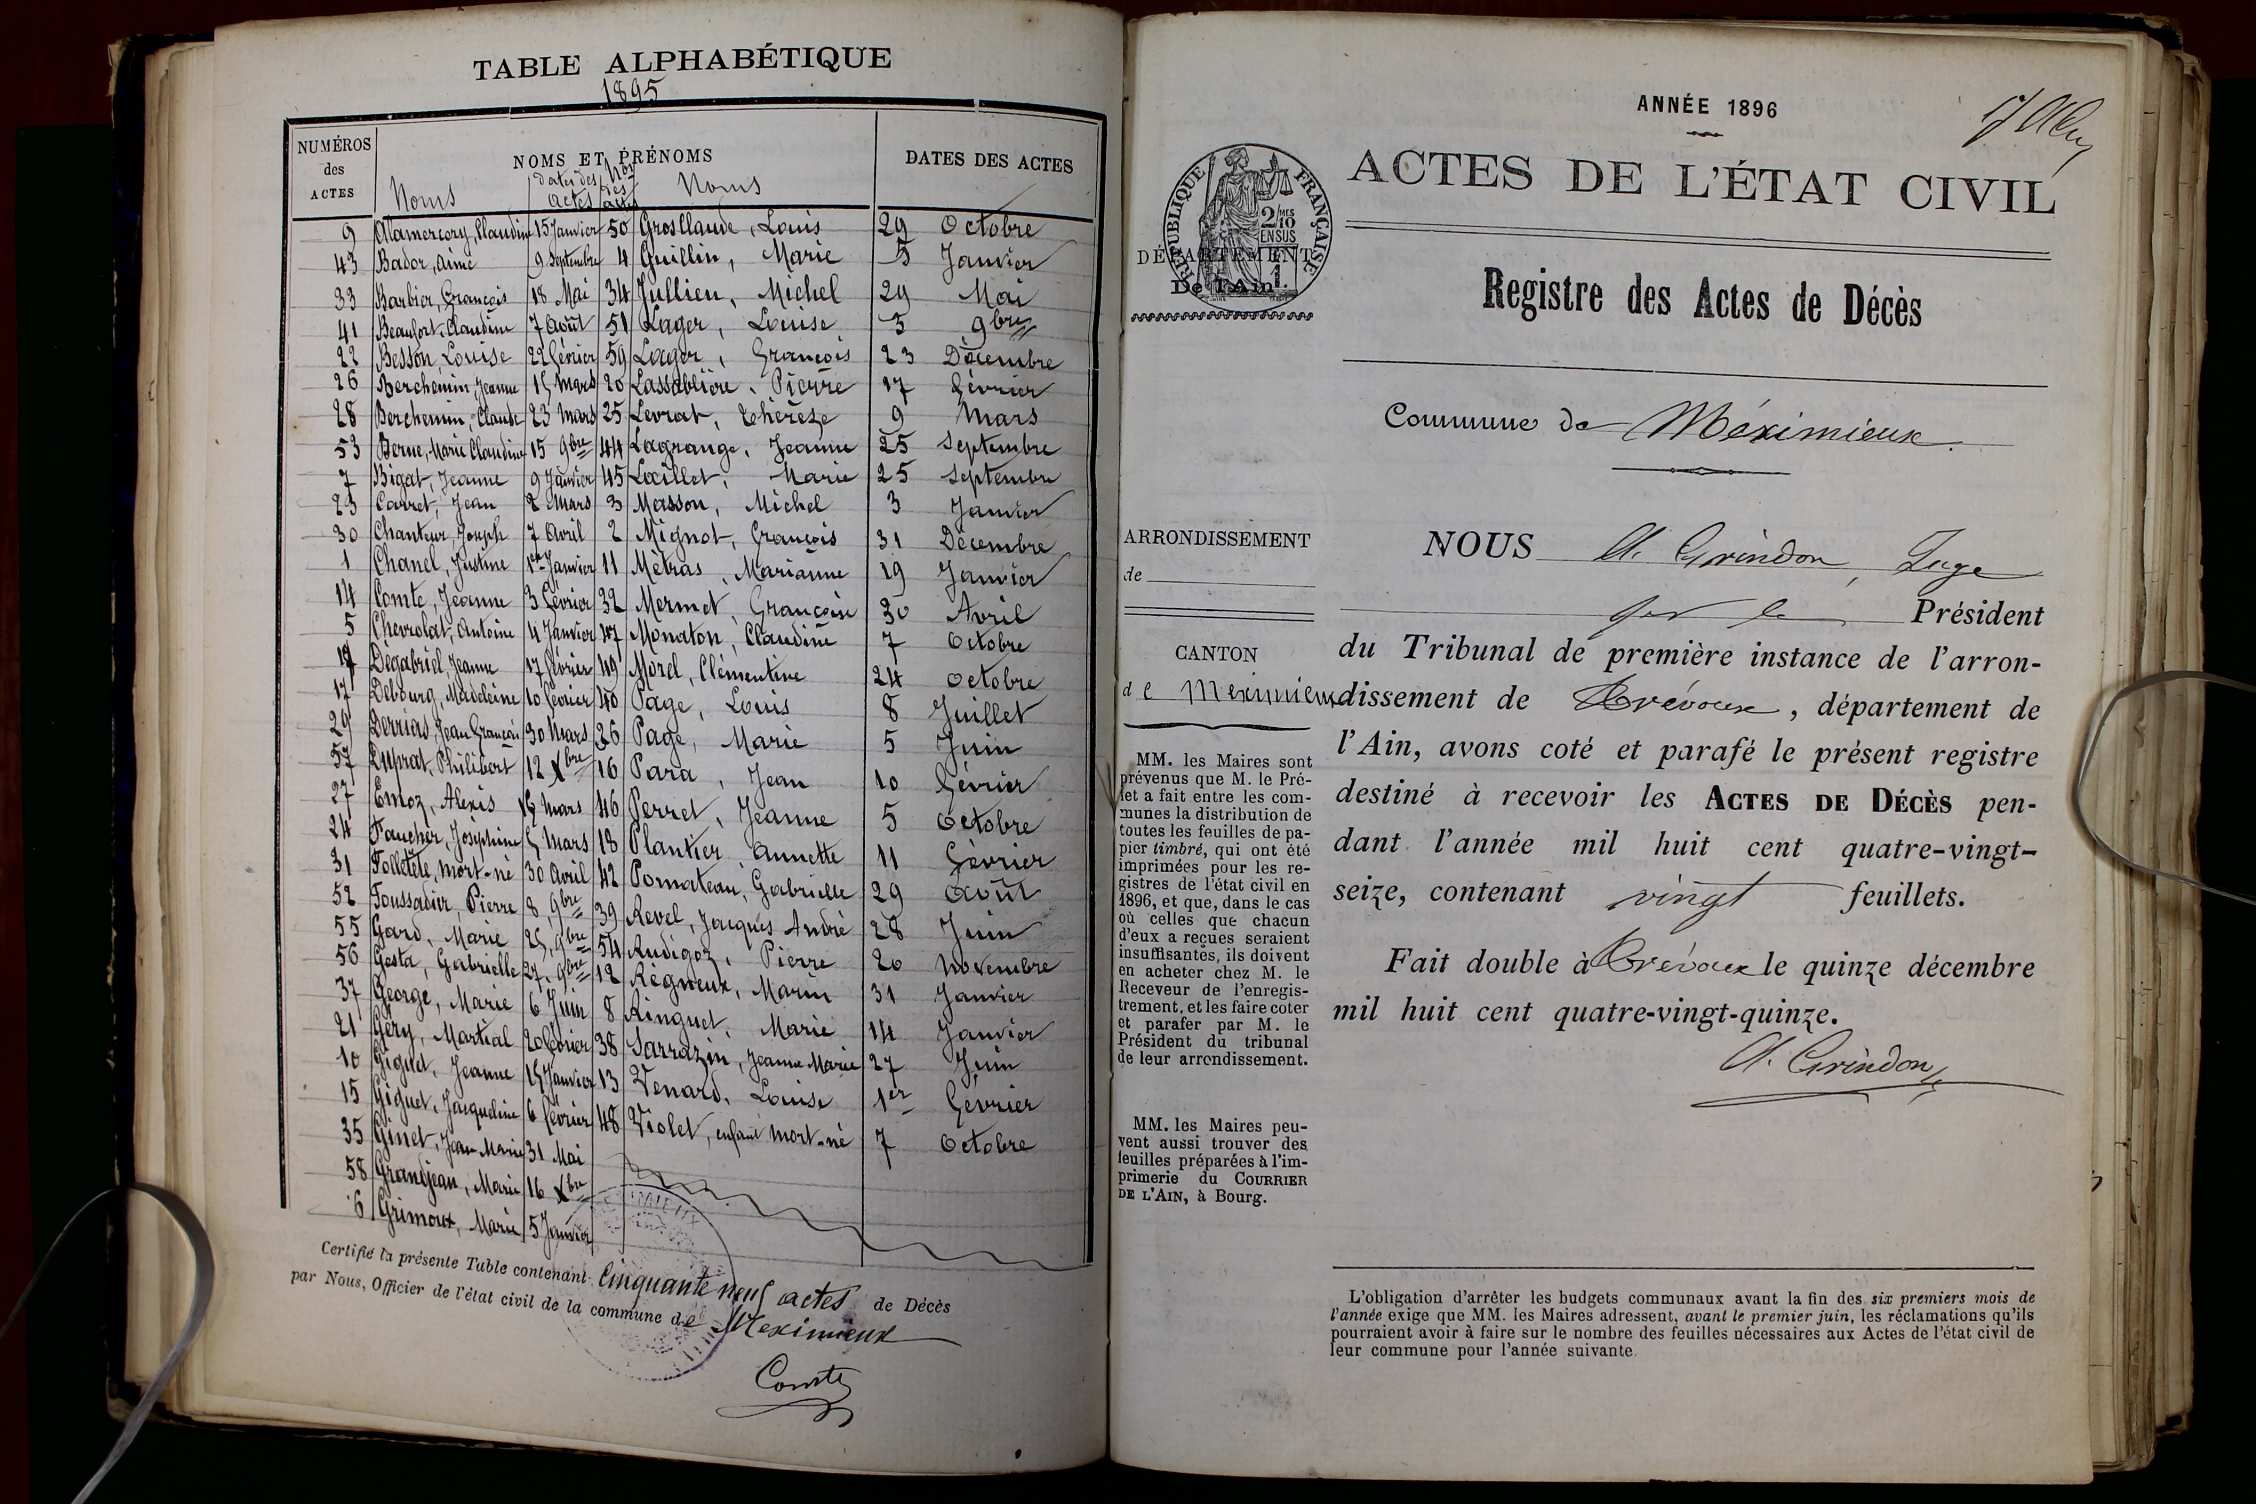 TABLE ALPHABÉTIQUE
1895
NUMÉROS des ACTES
NOMS ET PRÉNOMS
DATES DES ACTES
Noms dates des actes Nos des actes Noms
9 Alamercery, Claudine 15 Janvier 50 Grosclaude, Louis 29 Octobre
43 Bador, Aimé 9 Septembre 4 Guillin, Marie 5 Janvier
33 Barbier, François 18 Mai 34 Jullien, Michel 29 Mai
41 Beaufort, Claudine 7 Août 51 Lager, Louise 3 9bre
22 Besson, Louise 22 Février 59 Lager, François 23 Décembre
26 Berchemin, Jeanne 15 Mars 20 Lassablière, Pierre 17 Février
28 Berchemin, Claude 23 Mars 25 Levrat, Thérèse 9 Mars
53 Berne, Marie Claudine 15 9bre 44 Lagrange, Jeanne 25 Septembre
7 Bigat, Jeanne 9 Janvier 45 Loeillet, Marie 25 Septembre
23 Carret, Jean 2 Mars 3 Masson, Michel 3 Janvier
30 Chanteur, Joseph 7 Avril 2 Mignot, François 31 Décembre
1 Chanel, Justine 1er Janvier 11 Mètras, Marianne 19 Janvier
14 Comte, Jeanne 3 Février 32 Mermet, Françoise 30 Avril
5 Chevrolat, Antoine 4 Janvier 47 Monaton, Claudine 7 Octobre
Dégabriel, Jeanne 17 Février 49 Morel, Clémentine 24 Octobre
17 Debourg, Madeleine 10 Février 40 Page, Louis 8 Juillet
29 Derrias, Jean François 30 Mars 36 Page, Marie 5 Juin
57 Duprat, Philibert 12 Xbre 16 Para, Jean 10 Février
27 Emoz, Alexis Mars 46 Perret, Jeanne 5 Octobre
24 Faucher, Joséphine 5 Mars 18 Plantier, Annette 11 Février
31 Folletête, mort-né 30 Avril 42 Pomateau, Gabrielle 29 Août
52 Foussadier, Pierre 8 9bre 39 Revel, Jacques André 28 Juin
55 Gard, Marie 25 9bre 54 Rudigoz, Pierre 20 Novembre
56 Gesta, Gabrielle 27 9bre 12 Régneux, Marin 31 Janvier
37 George, Marie 6 Juin 8 Ringuet, Marie 14 Janvier
21 Géry, Martial 20 Février 38 Sarrazin, Jeanne Marie 27 Juin
10 Giguet, Jeanne 15 Janvier 13 Venard, Louise 1er Février
15 Giguet, Jacqueline 6 Février 48 Violet, enfant mort-né 7 Octobre
35 Ginet, Jean Marie 31 Mai
58 Grandjean, Marie 16 Xbre
6 Grimoux, Marie 5 Janvier
Certifié la présente Table contenant Cinquante neuf actes de Décès
par Nous, Officier de l'état civil de la commune de Meximieux
Comte
ANNÉE 1896
ACTES DE L'ÉTAT CIVIL
RÉPUBLIQUE FRANÇAISE
2/10MES
EN SUS
DÉPARTEMENT
De l'Ain
Registre des Actes de Décès
Commune de Méximieux.
ARRONDISSEMENT
de
CANTON
de Meximieux
MM. les Maires sont
prévenus que M. le Pré-
fet a fait entre les com-
munes la distribution de
toutes les feuilles de pa-
pier timbré, qui ont été
imprimées pour les re-
gistres de l'état civil en
1896, et que, dans le cas
où celles que chacun
d'eux a reçues seraient
insuffisantes, ils doivent
en acheter chez M. le
Receveur de l'enregis-
trement, et les faire coter
et parafer par M. le
Président du tribunal
de leur arrondissement.
MM. les Maires peu-
vent aussi trouver des
feuilles préparées à l'im-
primerie du COURRIER
DE L'AIN, à Bourg.
NOUS A. Grindon, Juge
pr le Président
du Tribunal de première instance de l'arron-
dissement de Trévoux, département de
l'Ain, avons coté et parafé le présent registre
destiné à recevoir les ACTES DE DÉCÈS pen-
dant l'année mil huit cent quatre-vingt-
seize, contenant vingt feuillets.
Fait double à Trévoux le quinze décembre
mil huit cent quatre-vingt-quinze.
A. Grindon
L'obligation d'arrêter les budgets communaux avant la fin des six premiers mois de
l'année exige que MM. les Maires adressent, avant le premier juin, les réclamations qu'ils
pourraient avoir à faire sur le nombre des feuilles nécessaires aux Actes de l'état civil de
leur commune pour l'année suivante.